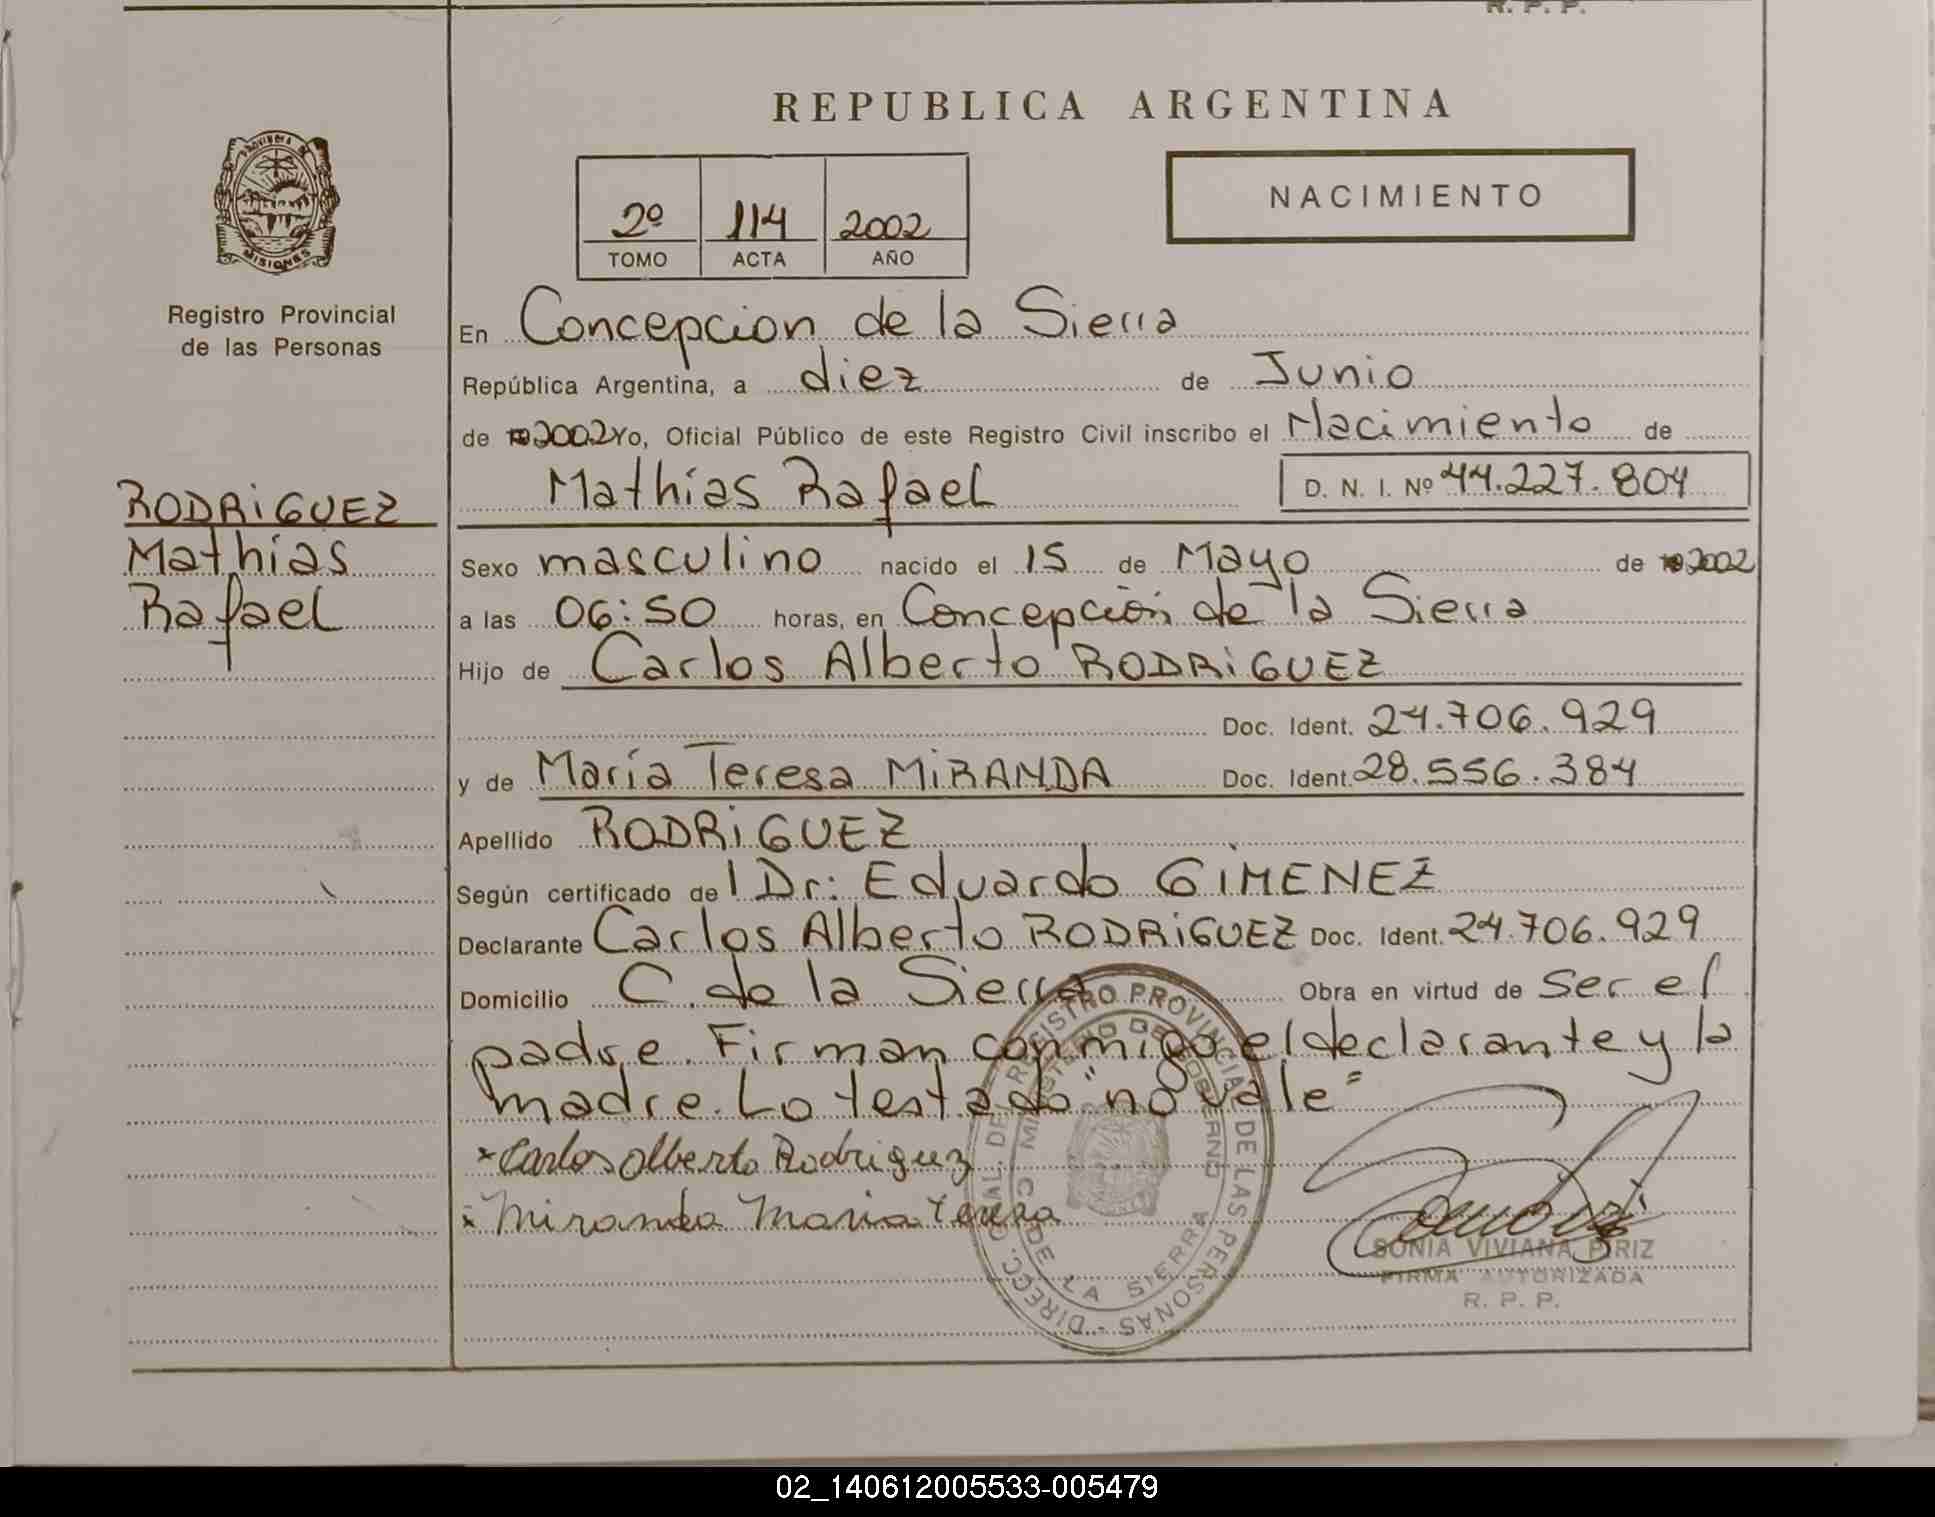 R. P. P.
REPUBLICA ARGENTINA
PROVINCIA DE
MISIONES
2º 114 2002
TOMO ACTA AÑO
NACIMIENTO
Registro Provincial
de las Personas
RODRIGUEZ
Mathías
Rafael
En Concepcion de la Sierra
República Argentina, a diez de Junio
de 2002 Yo, Oficial Público de este Registro Civil inscribo el Nacimiento de
Mathías Rafael D. N. I. Nº 44.227.804
Sexo masculino nacido el 15 de Mayo de 2002
a las 06:50 horas, en Concepción de la Sierra
Hijo de Carlos Alberto RODRIGUEZ
Doc. Ident. 24.706.929
y de María Teresa MIRANDA Doc. Ident. 28.556.384
Apellido RODRIGUEZ
Según certificado de l Dr: Eduardo GIMENEZ
Declarante Carlos Alberto RODRIGUEZ Doc. Ident. 24.706.929
Domicilio C. de la Sierra Obra en virtud de ser el
padre. Firman conmigo el declarante y la
madre. Lo testado "no vale"
x Carlos Alberto Rodriguez
x Miranda Maria Teresa
DIRECC. GRAL. DEL REGISTRO PROVINCIAL DE LAS PERSONAS -
MINISTERIO DE GOBIERNO
C. DE LA SIERRA
SONIA VIVIANA PIRIZ
FIRMA AUTORIZADA
R. P. P.
02_140612005533-005479